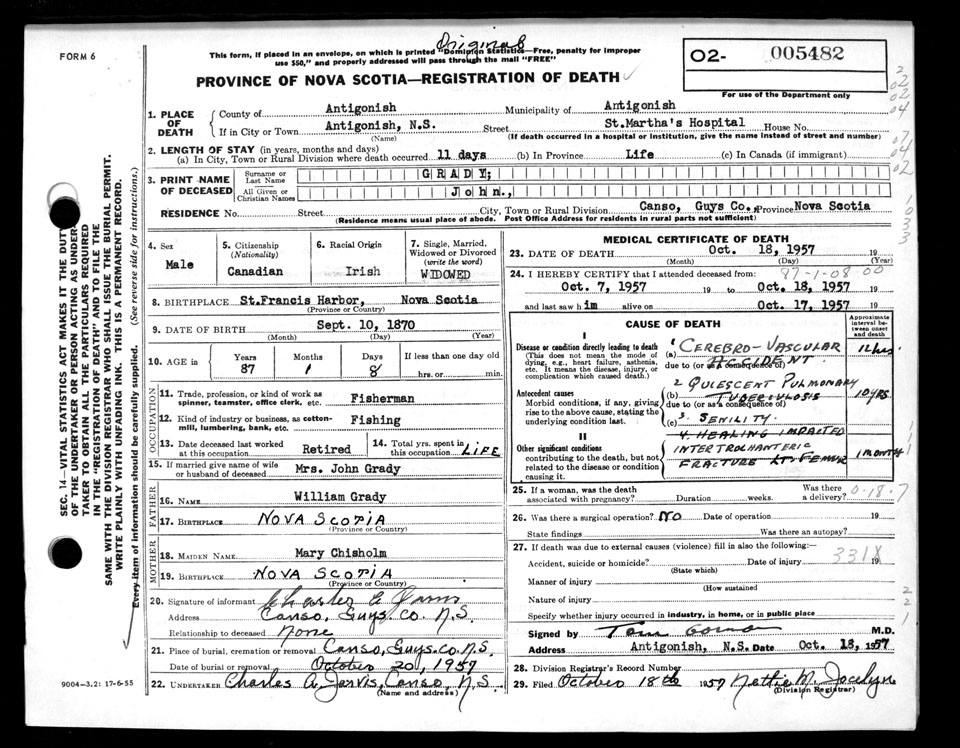 Original
FORM 6
This form, if placed in an envelope, on which is printed "Dominion Statistics—Free, penalty for improper
use $50," and properly addressed will pass through the mail "FREE"
O2- 005482
For use of the Department only
PROVINCE OF NOVA SCOTIA—REGISTRATION OF DEATH
1. PLACE OF DEATH
County of Antigonish Municipality of Antigonish
If in City or Town Antigonish, N.S. Street St.Martha's Hospital House No.
(Name) (If death occurred in a hospital or institution, give the name instead of street and number)
2. LENGTH OF STAY (in years, months and days)
(a) In City, Town or Rural Division where death occurred 11 days (b) In Province Life (c) In Canada (if immigrant)
3. PRINT NAME OF DECEASED
Surname or Last Name GRADY;
All Given or Christian Names John.,
RESIDENCE No. Street City, Town or Rural Division Canso, Guys Co., Province Nova Scotia
(Residence means usual place of abode. Post Office Address for residents in rural parts not sufficient)
4. Sex
Male
5. Citizenship
(Nationality)
Canadian
6. Racial Origin
Irish
7. Single, Married, Widowed or Divorced
(write the word)
WIDOWED
8. BIRTHPLACE St.Francis Harbor, Nova Scotia
(Province or Country)
9. DATE OF BIRTH Sept. 10, 1870
(Month) (Day) (Year)
10. AGE in
Years Months Days If less than one day old
87 1 8 hrs. or min.
OCCUPATION
11. Trade, profession, or kind of work as
spinner, teamster, office clerk, etc. Fisherman
12. Kind of industry or business, as cotton-
mill, lumbering, bank, etc. Fishing
13. Date deceased last worked
at this occupation Retired
14. Total yrs. spent in
this occupation LIFE
15. If married give name of wife
or husband of deceased Mrs. John Grady
FATHER
16. NAME William Grady
17. BIRTHPLACE NOVA SCOTIA
(Province or Country)
MOTHER
18. MAIDEN NAME Mary Chisholm
19. BIRTHPLACE NOVA SCOTIA
(Province or Country)
20. Signature of informant
Address Canso, Guys. Co. N.S.
Relationship to deceased None
21. Place of burial, cremation or removal Canso, Guys.Co. N.S.
Date of burial or removal October 20, 1957
22. UNDERTAKER Charles A. Jarvis, Canso, N.S.
(Name and address)
MEDICAL CERTIFICATE OF DEATH
23. DATE OF DEATH Oct. 18, 1957 19
(Month) (Day) (Year)
24. I HEREBY CERTIFY that I attended deceased from: 87-1-08 00
Oct. 7, 1957 19 to Oct. 18, 1957
and last saw him alive on Oct. 17, 1957 19
CAUSE OF DEATH
Approximate interval between onset and death
Disease or condition directly leading to death
(This does not mean the mode of
dying, e.g., heart failure, asthenia,
etc. It means the disease, injury, or
complication which caused death.)
(a) 1 CEREBRO-VASCULAR ACCIDENT 12 hrs.
due to (or as a consequence of)
Antecedent causes
Morbid conditions, if any, giving
rise to the above cause, stating the
underlying condition last.
(b) 2 QUIESCENT PULMONARY TUBERCULOSIS 10 yrs
due to (or as a consequence of)
(c) 3. SENILITY.
II
Other significant conditions
contributing to the death, but not
related to the disease or condition
causing it.
4. HEALING IMPACTED
INTERTROCHANTERIC
FRACTURE LT. FEMUR 1 MONTH
25. If a woman, was the death
associated with pregnancy? Duration weeks. Was there a delivery? 0-18-7
26. Was there a surgical operation? NO Date of operation 19
State findings Was there an autopsy?
27. If death was due to external causes (violence) fill in also the following:—
Accident, suicide or homicide? Date of injury 331X 19
(State which)
Manner of injury
(How sustained
Nature of injury
Specify whether injury occurred in industry, in home, or in public place
Signed by M.D.
Address Antigonish, N.S. Date Oct. 18, 1957
28. Division Registrar's Record Number
29. Filed October 18th 1957 Nettie M. Jocelyn
(Division Registrar)
9004—3.2: 17-6-55
SEC. 14—VITAL STATISTICS ACT MAKES IT THE DUTY
OF THE UNDERTAKER OR PERSON ACTING AS UNDER-
TAKER TO OBTAIN ALL THE PARTICULARS REQUIRED
IN THE "REGISTRATION OF DEATH" AND TO FILE THE
SAME WITH THE DIVISION REGISTRAR WHO SHALL ISSUE THE BURIAL PERMIT.
WRITE PLAINLY WITH UNFADING INK. THIS IS A PERMANENT RECORD.
Every item of information should be carefully supplied. (See reverse side for instructions.)